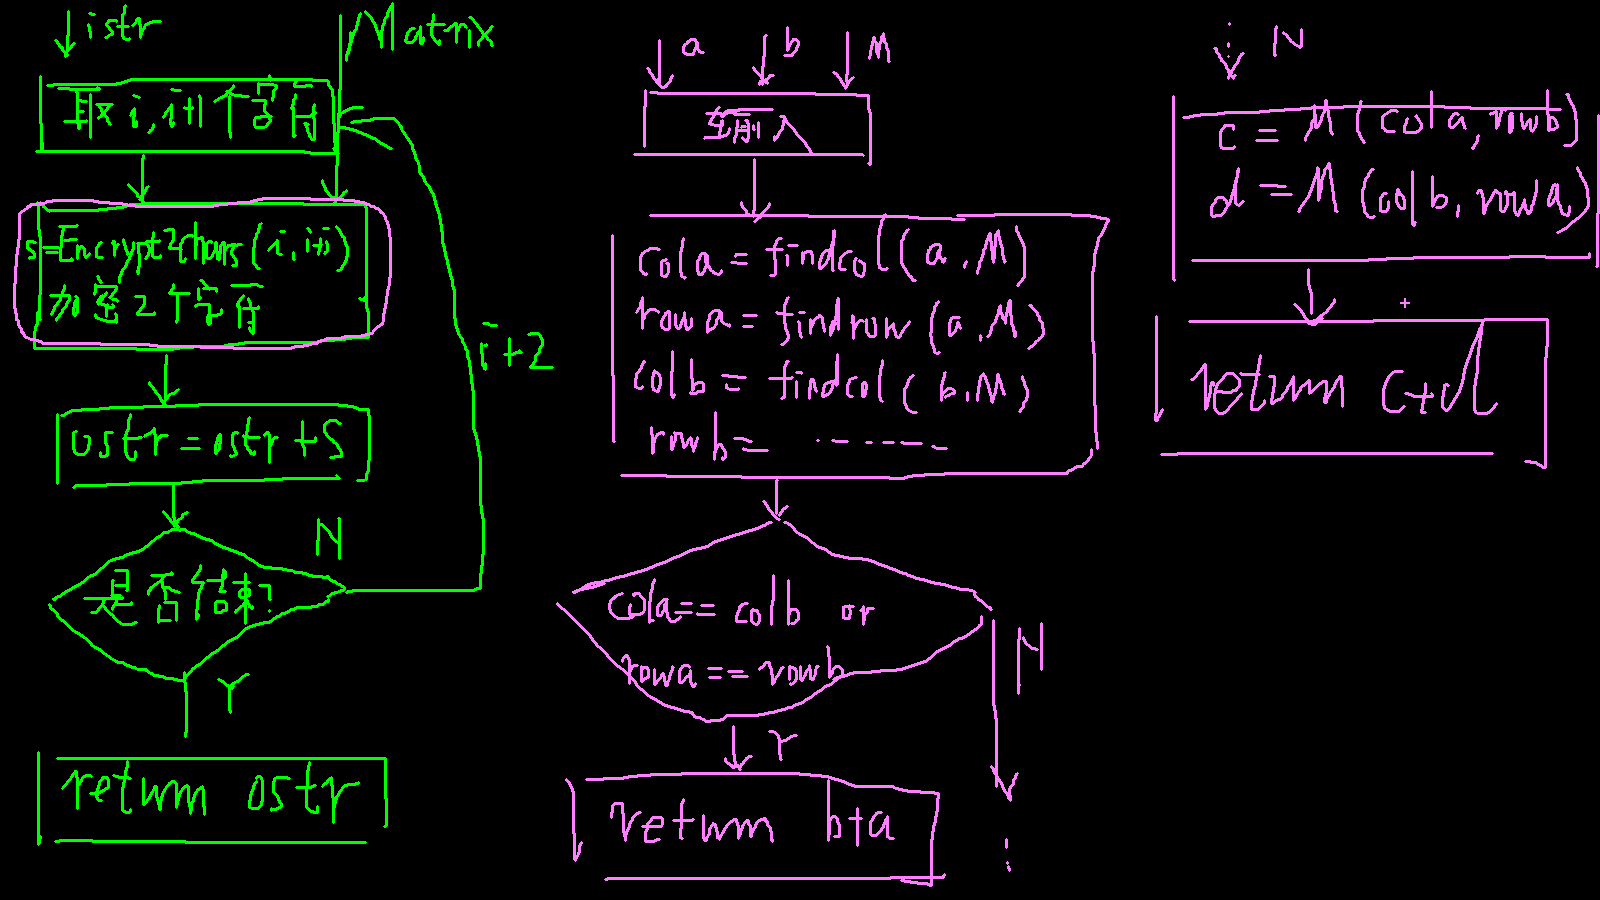 istr
Matrix
取 i, i+1 个字符
s=Encrypt2chars(i, i+1)
加密2个字符
ostr = ostr + S
N
是否结束?
Y
return ostr
i+2
a b M
cola = findcol(a, M)
rowa = findrow(a, M)
colb = findcol(b, M)
rowb = ........
cola == colb or
rowa == rowb
N
Y
return b+a
N
c = M (cola, rowb)
d = M (colb, rowa)
return c+d